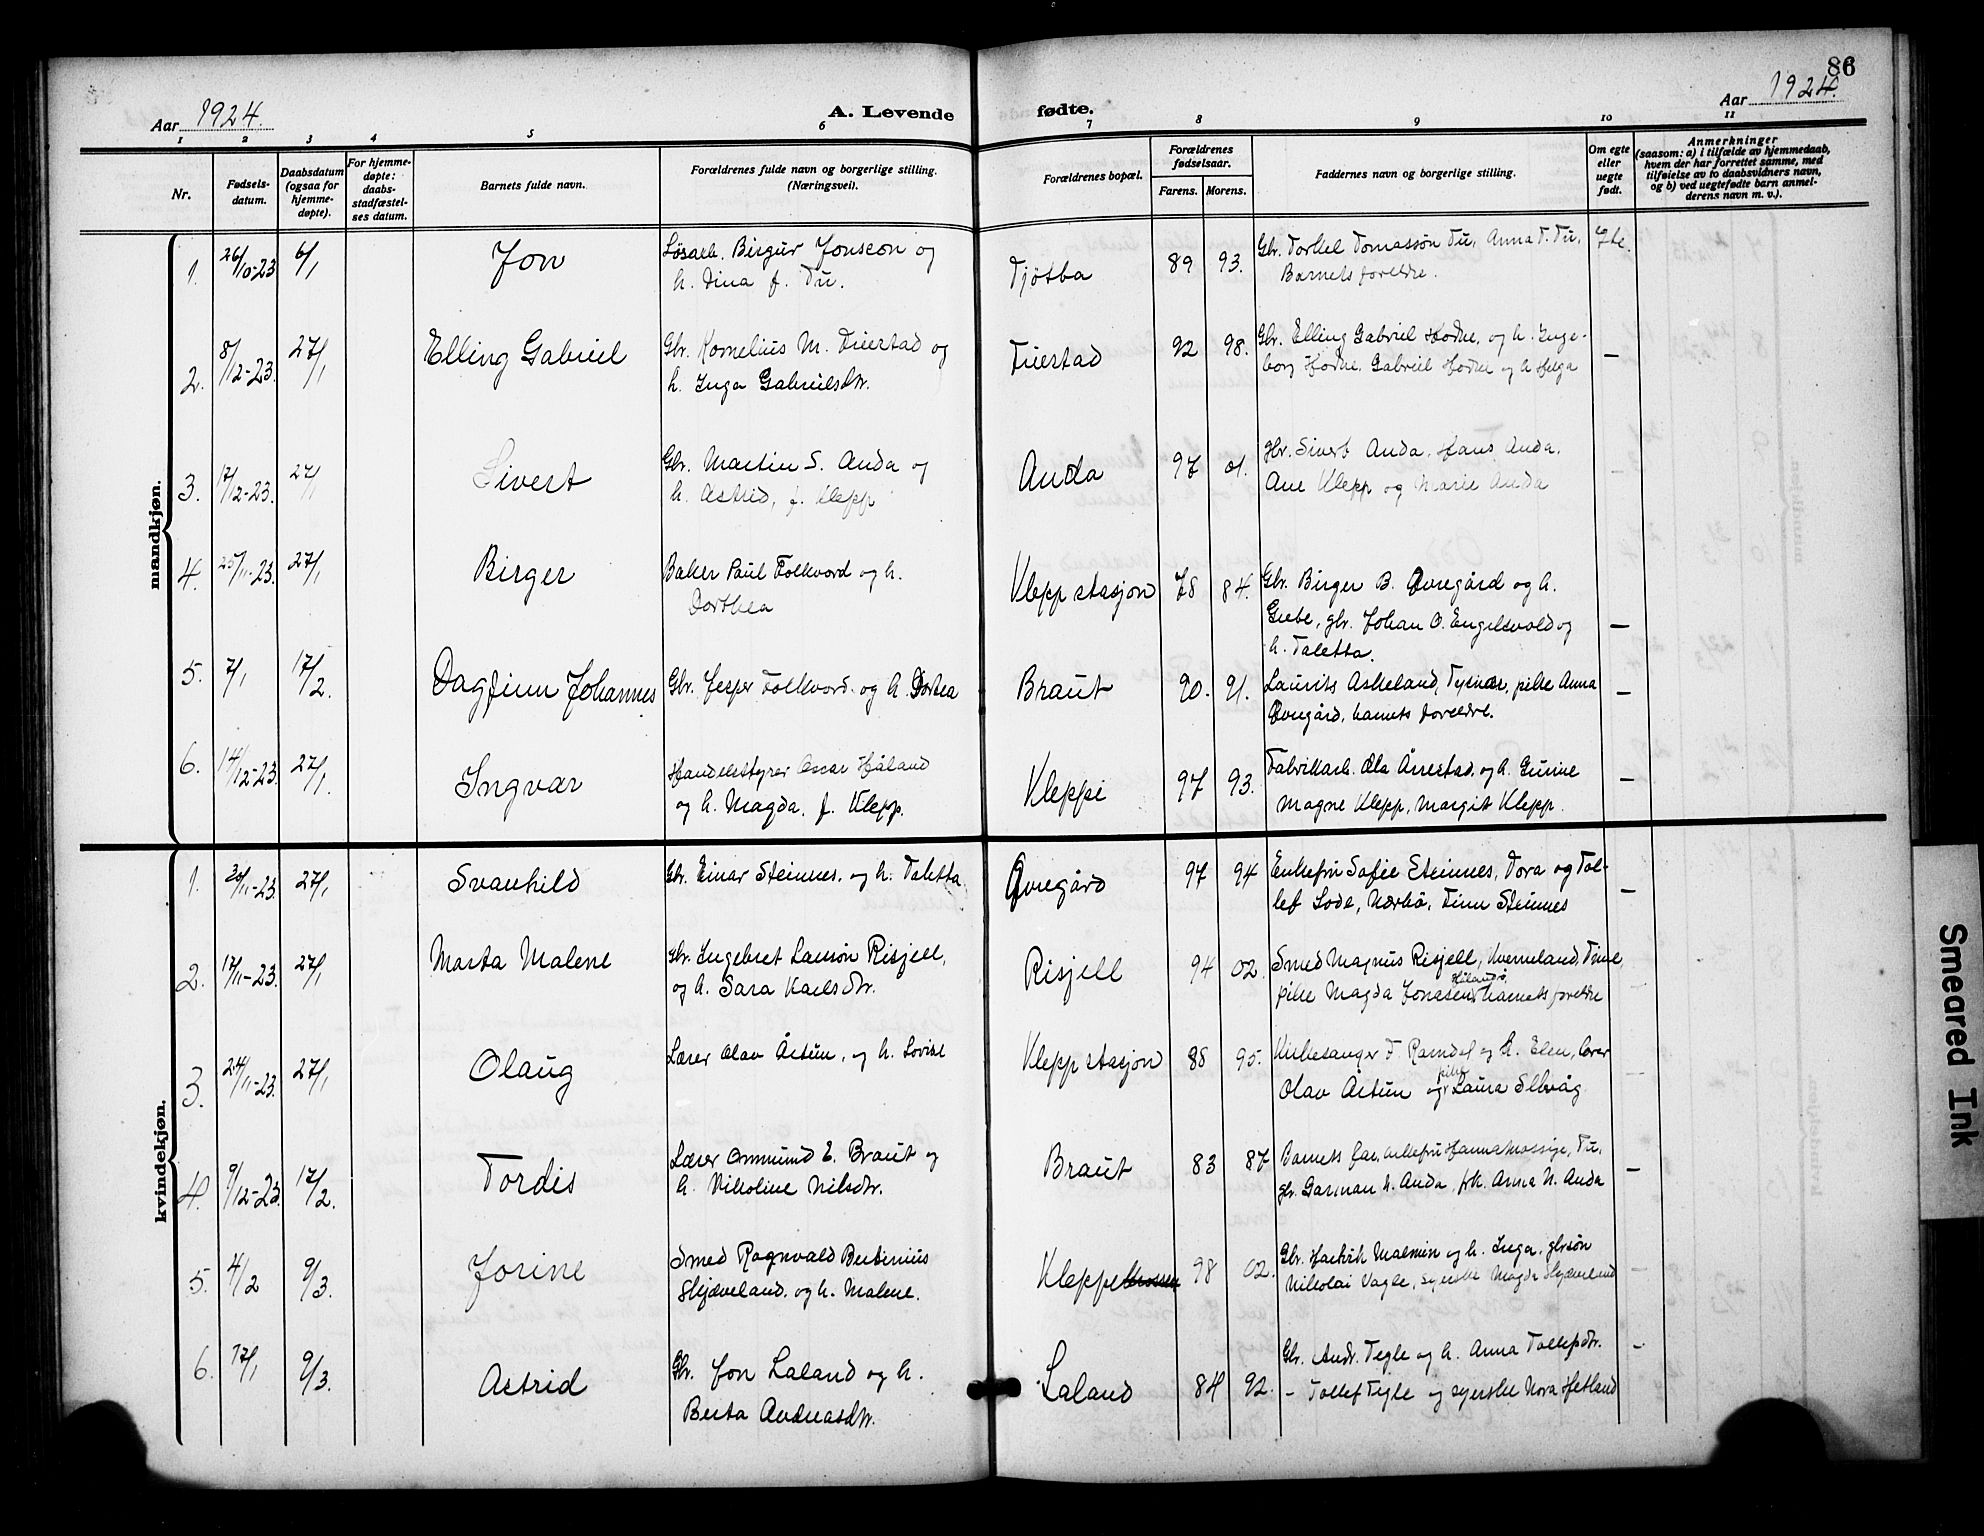 86
Aar 1924.
A. Levende
fødte.
Aar 1924.
1 2 3 4 5 6 7 8 9 10 11
Nr.
Fødsels-
datum.
Daabsdatum
(ogsaa for
hjemme-
døpte).
For hjemme-
døpte:
daabs-
stadfæstel-
ses datum.
Barnets fulde navn.
Forældrenes fulde navn og borgerlige stilling.
(Næringsvei).
Forældrenes bopæl.
Forældrenes
fødselsaar.
Farens. Morens.
Faddernes navn og borgerlige stilling.
Om egte
eller
uegte
født.
Anmerkninger
(saasom: a) i tilfælde av hjemmedaab,
hvem der har forrettet samme, med
tilføielse av to daabsvidners navn,
og b) ved uegtefødte barn anmel-
derens navn m. v.).
mandkjøn.
1. 26/10-23 6/1 Jon Løsarb. Birgur Jonseon og Tjøtta 89 93. Gbr. Torkel Tomassøn Tu, Anna T. Tu,
h. Dina f. Tu. Barnets foreldre.
2. 8/12-23. 27/1 Elling Gabriel Gbr. Kornelius M. Tuestad og Tuestad 92 98. Gbr. Elling Gabriel Hodne, og h. Inge- —
h. Inga Gabrielsdtr. borg Hodne, Gabriel Hodne og h Helga
3. 17/12-23. 27/1 Sivert Gbr. Martin S. Anda og Anda 97 01. gbr. Sivert Anda, Hans Anda,
h. Astrid, f. Klepp Ane Klepp og Marie Anda
4. 25/11-23. 27/1 Birger Baker Paul Folkvord og h. Klepp stasjon 78 84. Gbr. Birger B. Øvregård og h.
Dorthea Grebe, gbr. Johan O. Engelsvold og —
h. Taletta.
5. 7/1 17/2. Dagfinn Johannes Gbr. Jesper Folkvord. og h. Dortea Braut 90. 91. Laurits Askeland, Tysnæs, pike Anna —
Øvregård, barnets foreldre.
6. 14/12-23. 27/1. Ingvar Handelsstyrer Oscar Håland Kleppe 97 93. Fabrikkarb. Ola Årrestad. og h. Gurine —
og h. Magda, f. Klepp. Magne Klepp, Margit Klepp.
kvindekjøn.
1. 30/11-23. 27/1 Svanhild Gbr. Einar Steinnes, og h. Taletta Øvregård 97 94 Enkefru Sofie Steinnes, Tora og Tol- —
lef Lode, Nærbø, Finn Steinnes
2. 17/11-23. 27/1 Marta Malene Gbr. Ingebret Larsøn Risjell, Risjell 94 02. Smed Magnus Risjell, Kverneland, Time,
og h. Sara Karlsdtr. pike Magda Jonassen, barnets foreldre
3. 24/11-23. 27/1 Olaug Lærer Olav Årtun, og h. Lovise Klepp stasjon 88 95. Kirkesanger F. Ramdal og h. Elen, lærer
Olav Årtun og pike Laura Selvåg
4. 9/12-23. 17/2. Tordis Lærer Ommund E. Braut og Braut 83 87 Barnets far, enkefru Hanna Mossige, Tu, —
h. Nikoline Nilsdtr. gbr. Garman N. Anda, frk. Anna N. Anda
5. 4/2 9/3. Jorine Smed Ragnvald Bertinius Kleppekrossen 98 02. Gbr. Hartvik Malmin og h. Inga, gbrsøn —
Skjæveland. og h. Malene. Nikolai Vagle, syerske Magda Skjæveland
6. 17/1 9/3. Astrid Gbr. Jon Laland og h. Laland 84 92. Gbr. Andr. Tegle og h. Anna Tollefsdtr. —
Berta Andreasdtr. – Tollef Tegle og syerske Nora Hetland
Smeared Ink